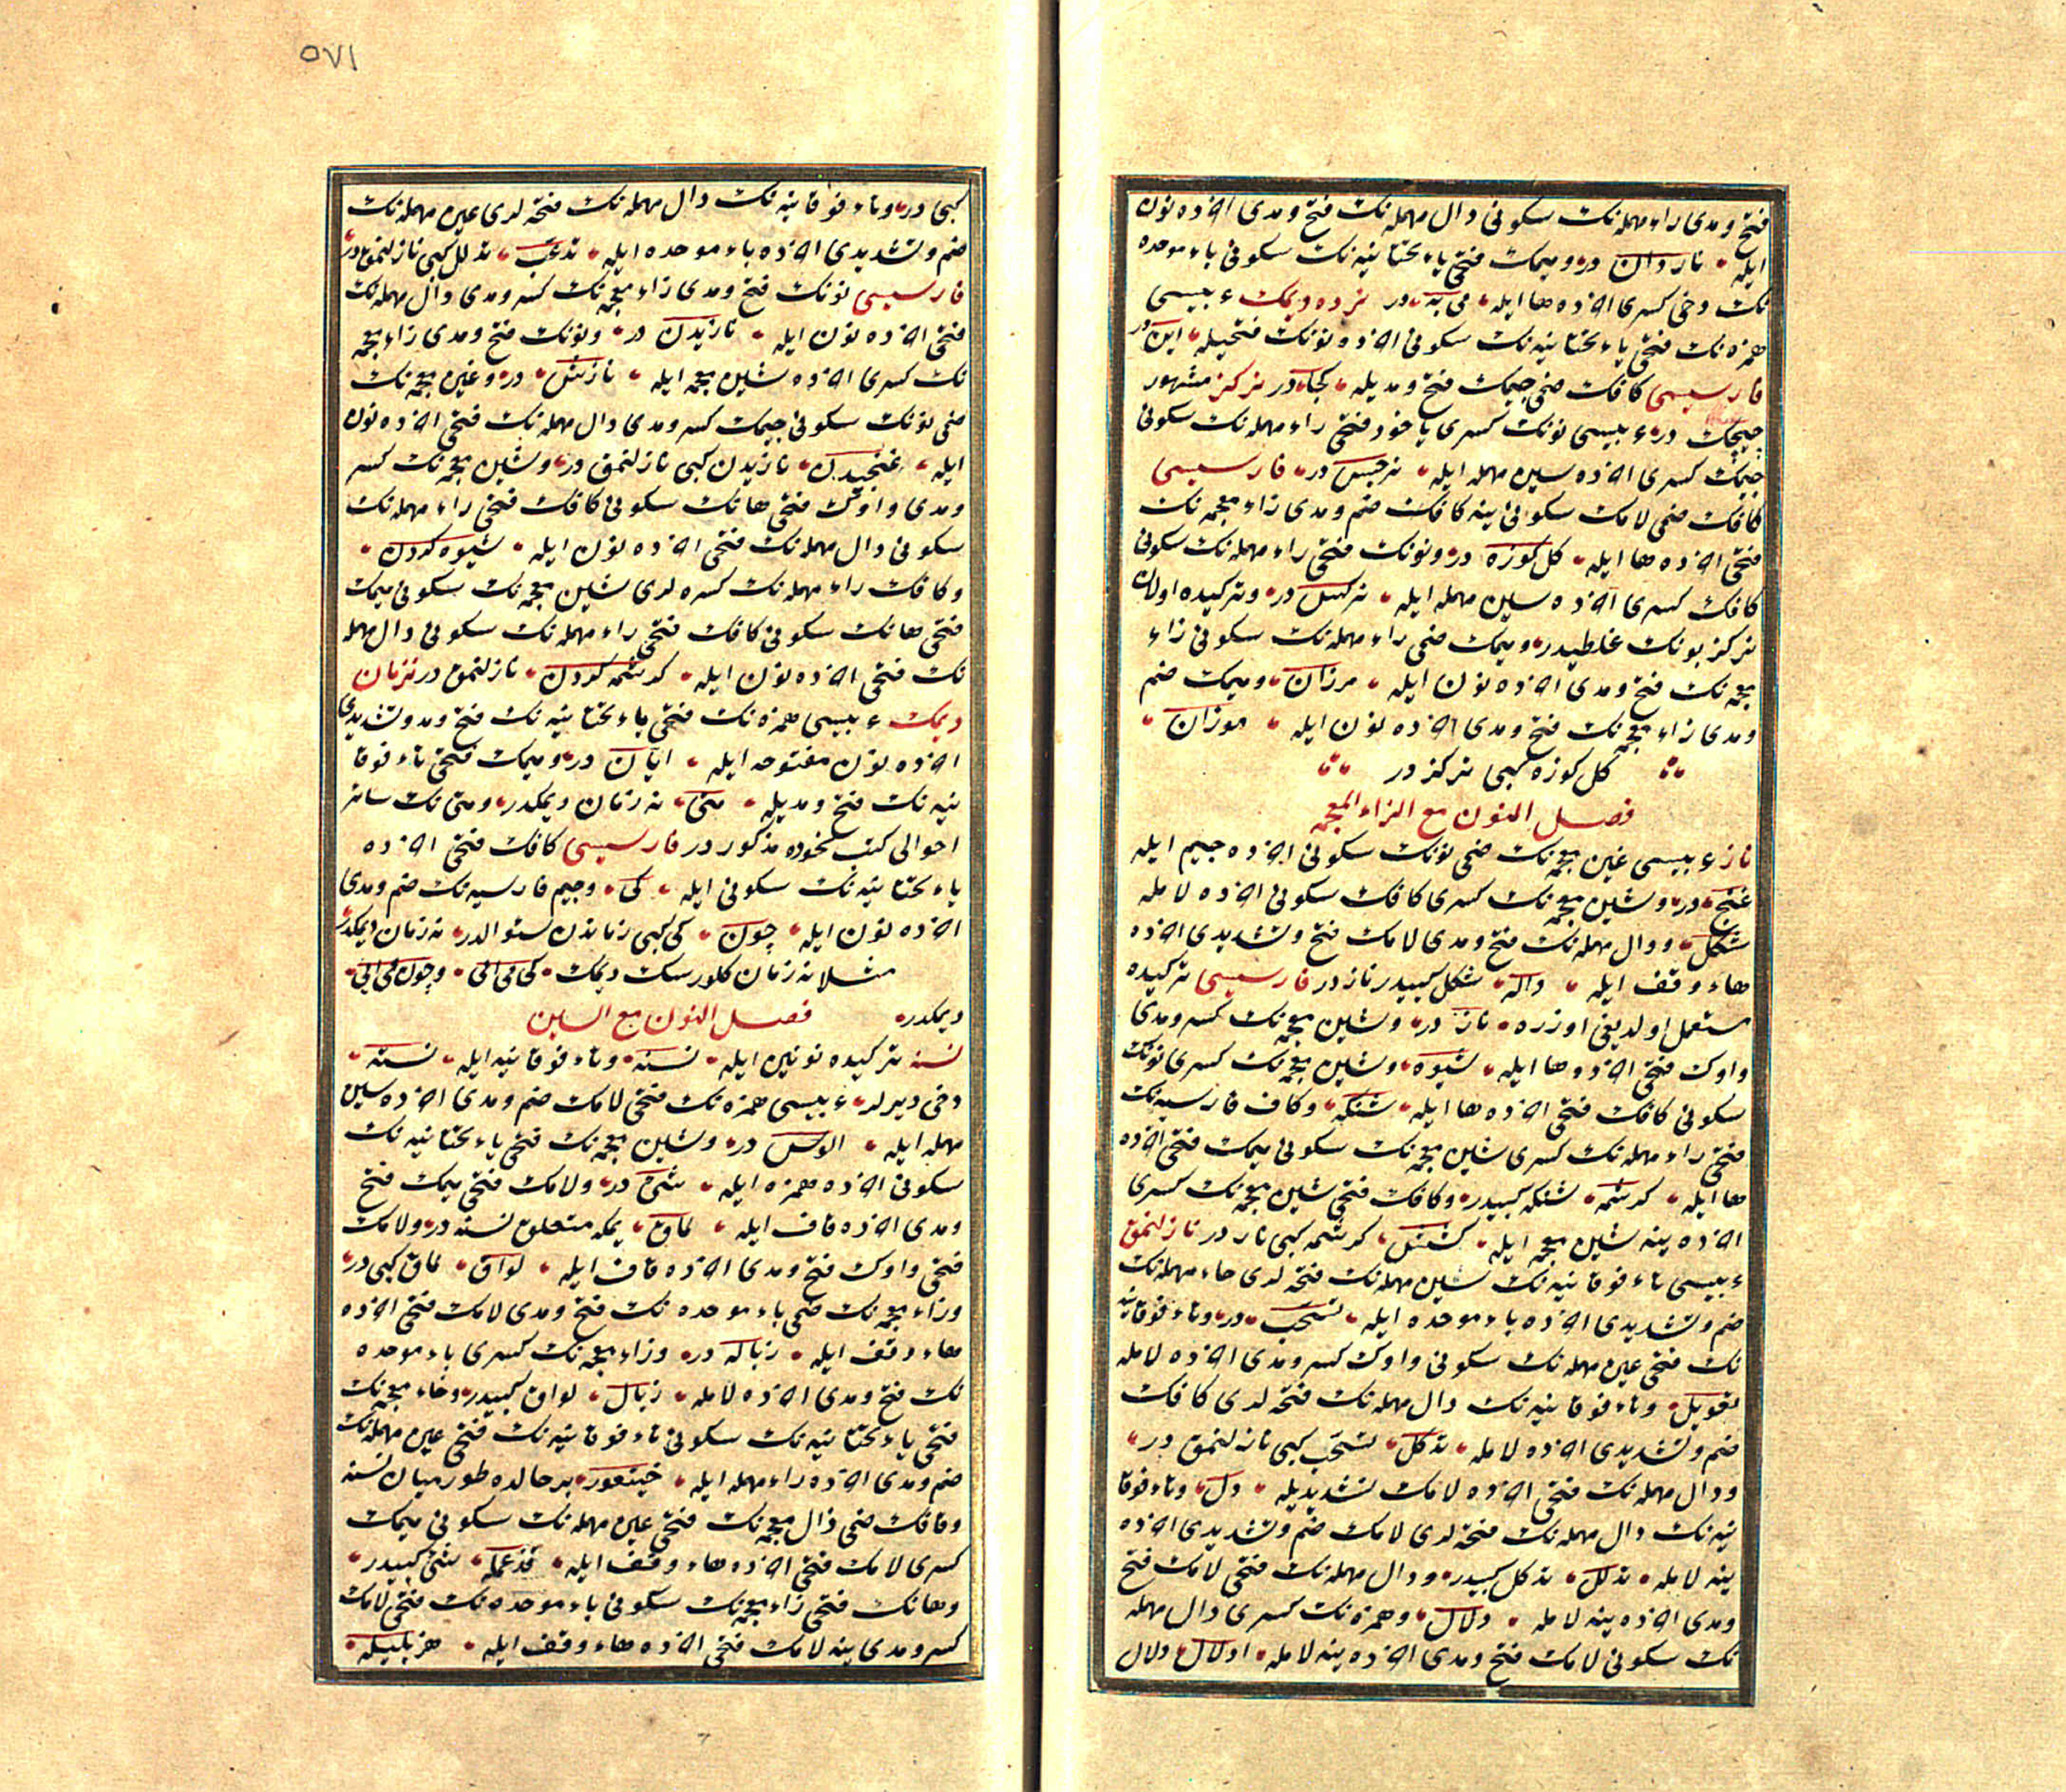 فتح و مدی راء مهمله نك سكونی دال مهمله نك فتح و مدی اخرده نون
ایله ناردان در و میمك فتحی یاء تحتانیه نك سكونی باء موحده
نك دخی كسری اخرده ها ایله می به در نرده دیمك عربیسی
همزه نك فتحی یاء تحتانیه نك سكونی اخرده نونك فتحیله این در
فارسیسی كافك ضمی جیمك فتح و مدیله كجا در نركز مشهور
چیچك در عربیسی نونك كسری یا خود فتحی راء مهمله نك سكونی
جیمك كسری اخرده سین مهمله ایله نرجس در فارسیسی
كافك ضمی لامك سكونی ینه كافك ضم و مدی زاء معجمه نك
فتحی اخرده ها ایله كل كوزه در و نونك فتحی راء مهمله نك سكونی
كافك كسری اخرده سین مهمله ایله نركس در و تركیده اولان
نركز بونك غلطیدر و میمك ضمی راء مهمله نك سكونی زاء
معجمه نك فتح و مدی اخرده نون ایله مرزان و میمك ضم
و مدی زاء معجمه نك فتح و مدی اخرده نون ایله موزان
كل كوزه كبی نركز در
فصل النون مع الزاء المعجمه
ناز عربیسی غین معجمه نك ضمی نونك سكونی اخرده جیم ایله
غنج در و شین معجمه نك كسری كافك سكونی اخرده لامله
شكل و دال مهمله نك فتح و مدی لامك فتح و تشدیدی اخرده
هاء وقف ایله داله شكل كبیدر ناز در فارسیسی تركیده
مستعمل اولدیغی اوزره ناز در و شین معجمه نك كسر و مدی
واوك فتحی اخرده ها ایله شیوه و شین معجمه نك كسری نونك
سكونی كافك فتحی اخرده ها ایله شنكه و كاف فارسیه نك
فتحی راء مهمله نك كسری شین معجمه نك سكونی میمك فتحی اخرده
ها ایله كرشمه شنكه كبیدر و كافك فتحی شین معجمه نك كسری
اخرده ینه شین معجمه ایله كشش كرشمه كبی ناز در نازلنمق
عربیسی تاء فوقانیه نك سین مهمله نك فتحه لری حاء مهمله نك
ضم و تشدیدی اخرده باء موحده ایله تسحب در و تاء فوقانیه
نك فتحی عین مهمله نك سكونی واوك كسر و مدی اخرده لامله
تعویل و تاء فوقانیه نك دال مهمله نك فتحه لری كافك
ضم و تشدیدی اخرده لامله تدكل تسحب كبی نازلنمق در
و دال مهمله نك فتحی اخرده لامك تشدیدیله دل و تاء فوقا
نیه نك دال مهمله نك فتحه لری لامك ضم و تشدیدی اخرده
ینه لامله تدلل تدكل كبیدر و دال مهمله نك فتحی لامك فتح
و مدی اخرده ینه لامله دلال و همزه نك كسری دال مهمله
نك سكونی لامك فتح و مدی اخرده ینه لامله ادلال دلال
٥٧١
كبی در و تاء فوقانیه نك دال مهمله نك فتحه لری عین مهمله نك
ضم و تشدیدی اخرده باء موحده ایله تدعب تدلل كبی نازلنمق در
فارسیسی نونك فتح و مدی زاء معجمه نك كسر و مدی دال مهمله نك
فتحی اخرده نون ایله نازیدن در و نونك فتح و مدی زاء معجمه
نك كسری اخرده شین معجمه ایله نازش در و غین معجمه نك
ضمی نونك سكونی جیمك كسر و مدی دال مهمله نك فتحی اخرده نون
ایله غنجیدن نازیدن كبی نازلنمق در و شین معجمه نك كسر
و مدی واوك فتحی هانك سكونی كافك فتحی راء مهمله نك
سكونی دال مهمله نك فتحی اخرده نون ایله شیوه كردن
و كافك راء مهمله نك كسره لری شین معجمه نك سكونی میمك
فتحی هانك سكونی كافك فتحی راء مهمله نك سكونی دال مهمله
نك فتحی اخرده نون ایله كرشمه كردن نازلنمق در نزمان
دیمك عربیسی همزه نك فتحی یاء تحتانیه نك فتح و مد و تشدیدی
اخرده نون مفتوحه ایله ایان در و میمك فتحی تاء فوقا
نیه نك فتح و مدیله متی نه زمان دیمكدر و متی نك سائر
احوالی كتب نحوده مذكور در فارسیسی كافك فتحی اخرده
یاء تحتانیه نك سكونی ایله كی و جیم فارسیه نك ضم و مدی
اخرده نون ایله چون كی كبی زماندن سئوالدر نه زمان دیمكدر
مثلا نه زمان كلورسك دیمك كی می ائی و چون می ائی
دیمكدر فصل النون مع السین
نسنه تركیده نونین ایله نسنه و تاء فوقانیه ایله نسته
دخی دیرلر عربیسی همزه نك فتحی لامك ضم و مدی اخرده سین
مهمله ایله الوس در و شین معجمه نك فتحی یاء تحتانیه نك
سكونی اخرده همزه ایله شیء در و لامك فتحی میمك فتح
و مدی اخرده قاف ایله لماق یمكه متعلق نسنه در و لامك
فتحی واوك فتح و مدی اخرده قاف ایله لواق لماق كبی در
و زاء معجمه نك ضمی باء موحده نك فتح و مدی لامك فتحی اخرده
هاء وقف ایله زباله در و زاء معجمه نك كسری باء موحده
نك فتح و مدی اخرده لامله زبال لواق كبیدر و خاء معجمه نك
فتحی یاء تحتانیه نك سكونی تاء فوقانیه نك فتحی عین مهمله نك
ضم و مدی اخرده راء مهمله ایله خیتعور بر حالده طورمیان نسنه
و قافك ضمی ذال معجمه نك فتحی عین مهمله نك سكونی میمك
كسری لامك فتحی اخرده هاء وقف ایله قذعمله شیء كبیدر
و هانك فتحی زاء معجمه نك سكونی باء موحده نك فتحی لامك
كسر و مدی ینه لامك فتحی اخرده هاء وقف ایله هزبلیله